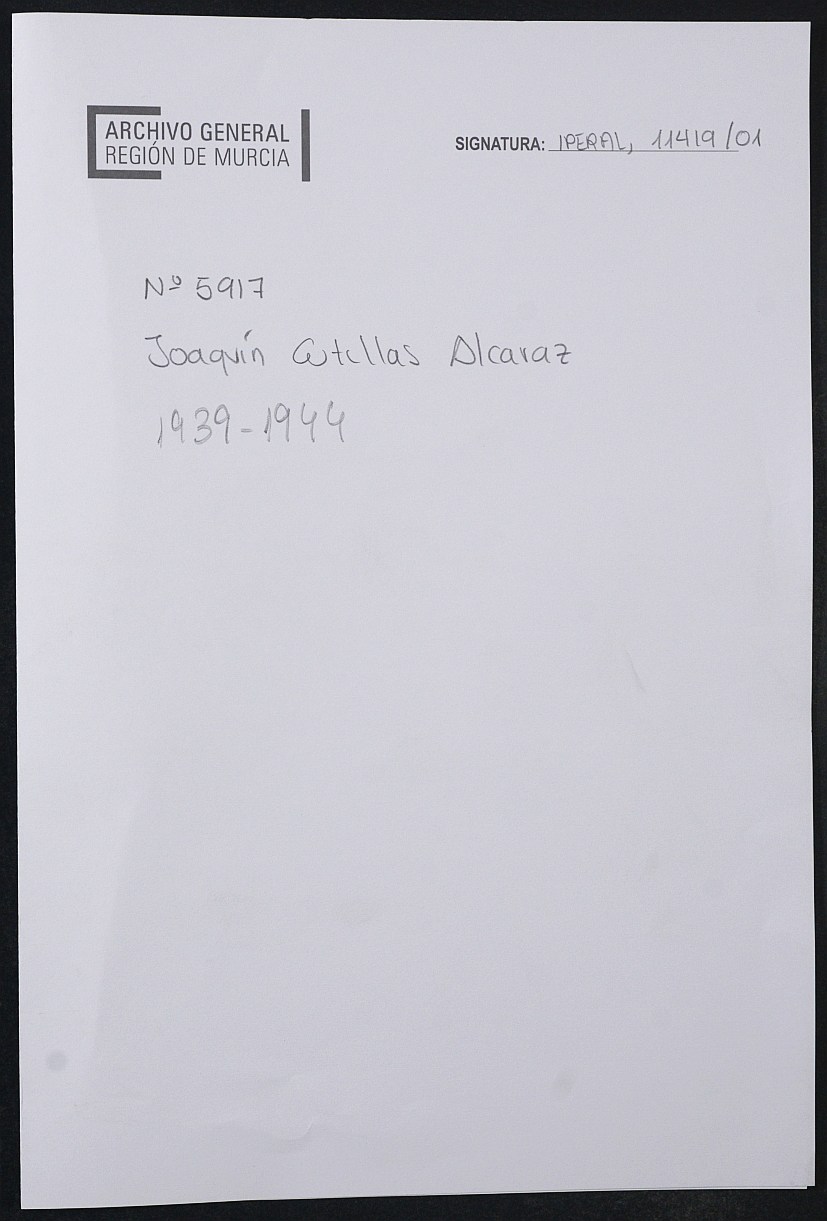 ARCHIVO GENERAL
REGIÓN DE MURCIA
SIGNATURA: IPERAL, 11419/01
Nº 5917
Joaquín Cutillas Alcaraz
1939-1944